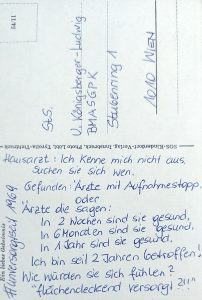 StS.
U. Königsberger-Ludwig
BMASGPK
Stubenring 1
1010 WIEN
SOS-Kinderdorf-Verlag, Innsbruck, Photo Löbl, Tyrolia-Tiefdruck
Hausarzt: Ich kenne mich nicht aus.
Suchen sie sich wen.
Gefunden: Ärzte mit Aufnahmestopp.
oder
Ärzte die sagen:
In 2 Wochen sind sie gesund,
in 6 Monaten sind sie gesund,
in 1 Jahr sind sie gesund.
Ich bin seit 2 Jahren betroffen!
Wie würden sie sich fühlen?
"flächendeckend versorgt?!!"